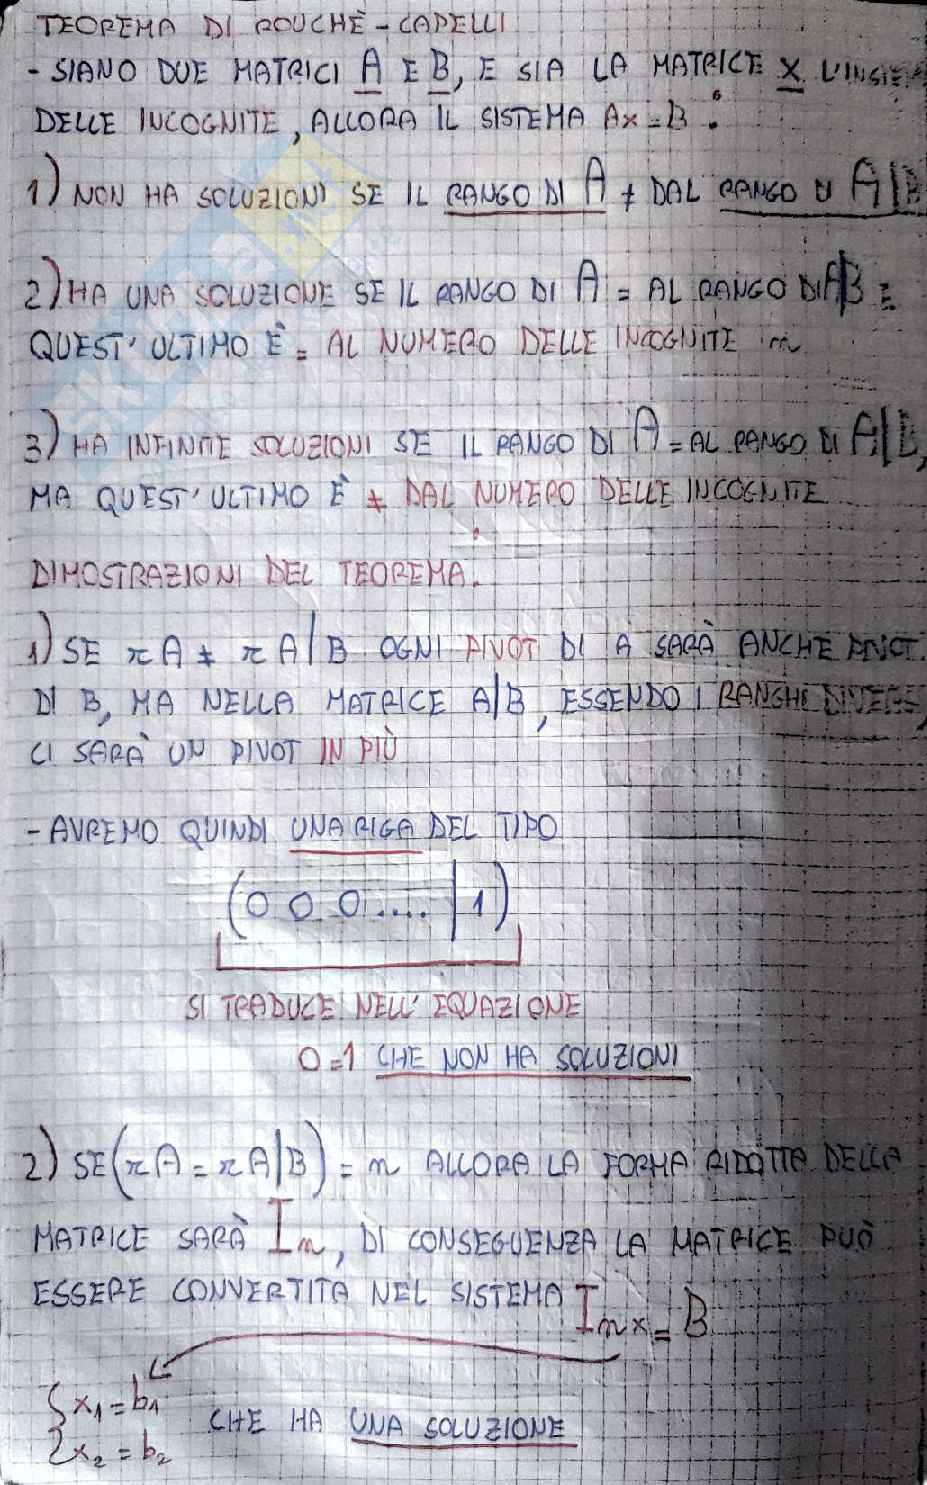 TEOREMA DI ROUCHÈ - CAPELLI
- SIANO DUE MATRICI A E B, E SIA LA MATRICE X L'INSIEM
DELLE INCOGNITE, ALLORA IL SISTEMA Ax=B :
1) NON HA SOLUZIONI SE IL RANGO DI A ≠ DAL RANGO DI A|B
2) HA UNA SOLUZIONE SE IL RANGO DI A = AL RANGO DI A|B E
QUEST'ULTIMO È = AL NUMERO DELLE INCOGNITE n
3) HA INFINITE SOLUZIONI SE IL RANGO DI A = AL RANGO DI A|B,
MA QUEST'ULTIMO È ≠ DAL NUMERO DELLE INCOGNITE
DIMOSTRAZIONI DEL TEOREMA:
1) SE rA ≠ rA|B OGNI PIVOT DI A SARÀ ANCHE PIVOT
DI B, MA NELLA MATRICE A|B, ESSENDO I RANGHI DIVERSI,
CI SARÀ UN PIVOT IN PIÙ
- AVREMO QUINDI UNA RIGA DEL TIPO
(0 0 0 .... | 1)
SI TRADUCE NELL'EQUAZIONE
0=1 CHE NON HA SOLUZIONI
2) SE (rA = rA|B) = n ALLORA LA FORMA RIDOTTA DELLA
MATRICE SARÀ In, DI CONSEGUENZA LA MATRICE PUÒ
ESSERE CONVERTITA NEL SISTEMA Inx = B
{x1 = b1
x2 = b2 CHE HA UNA SOLUZIONE